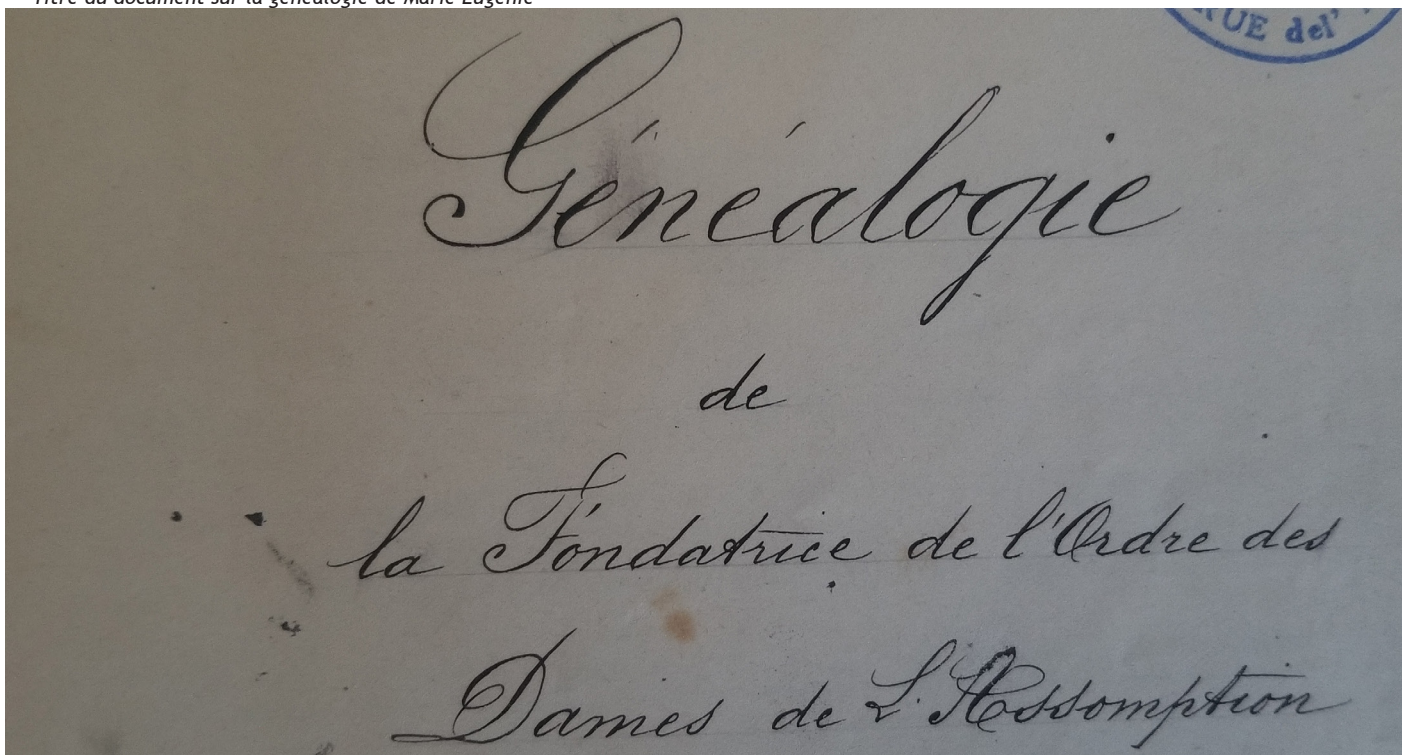 Titre du document sur la généalogie de Marie Eugénie
RUE del'
Généalogie
de
la Fondatrice de l'Ordre des
Dames de L'Assomption